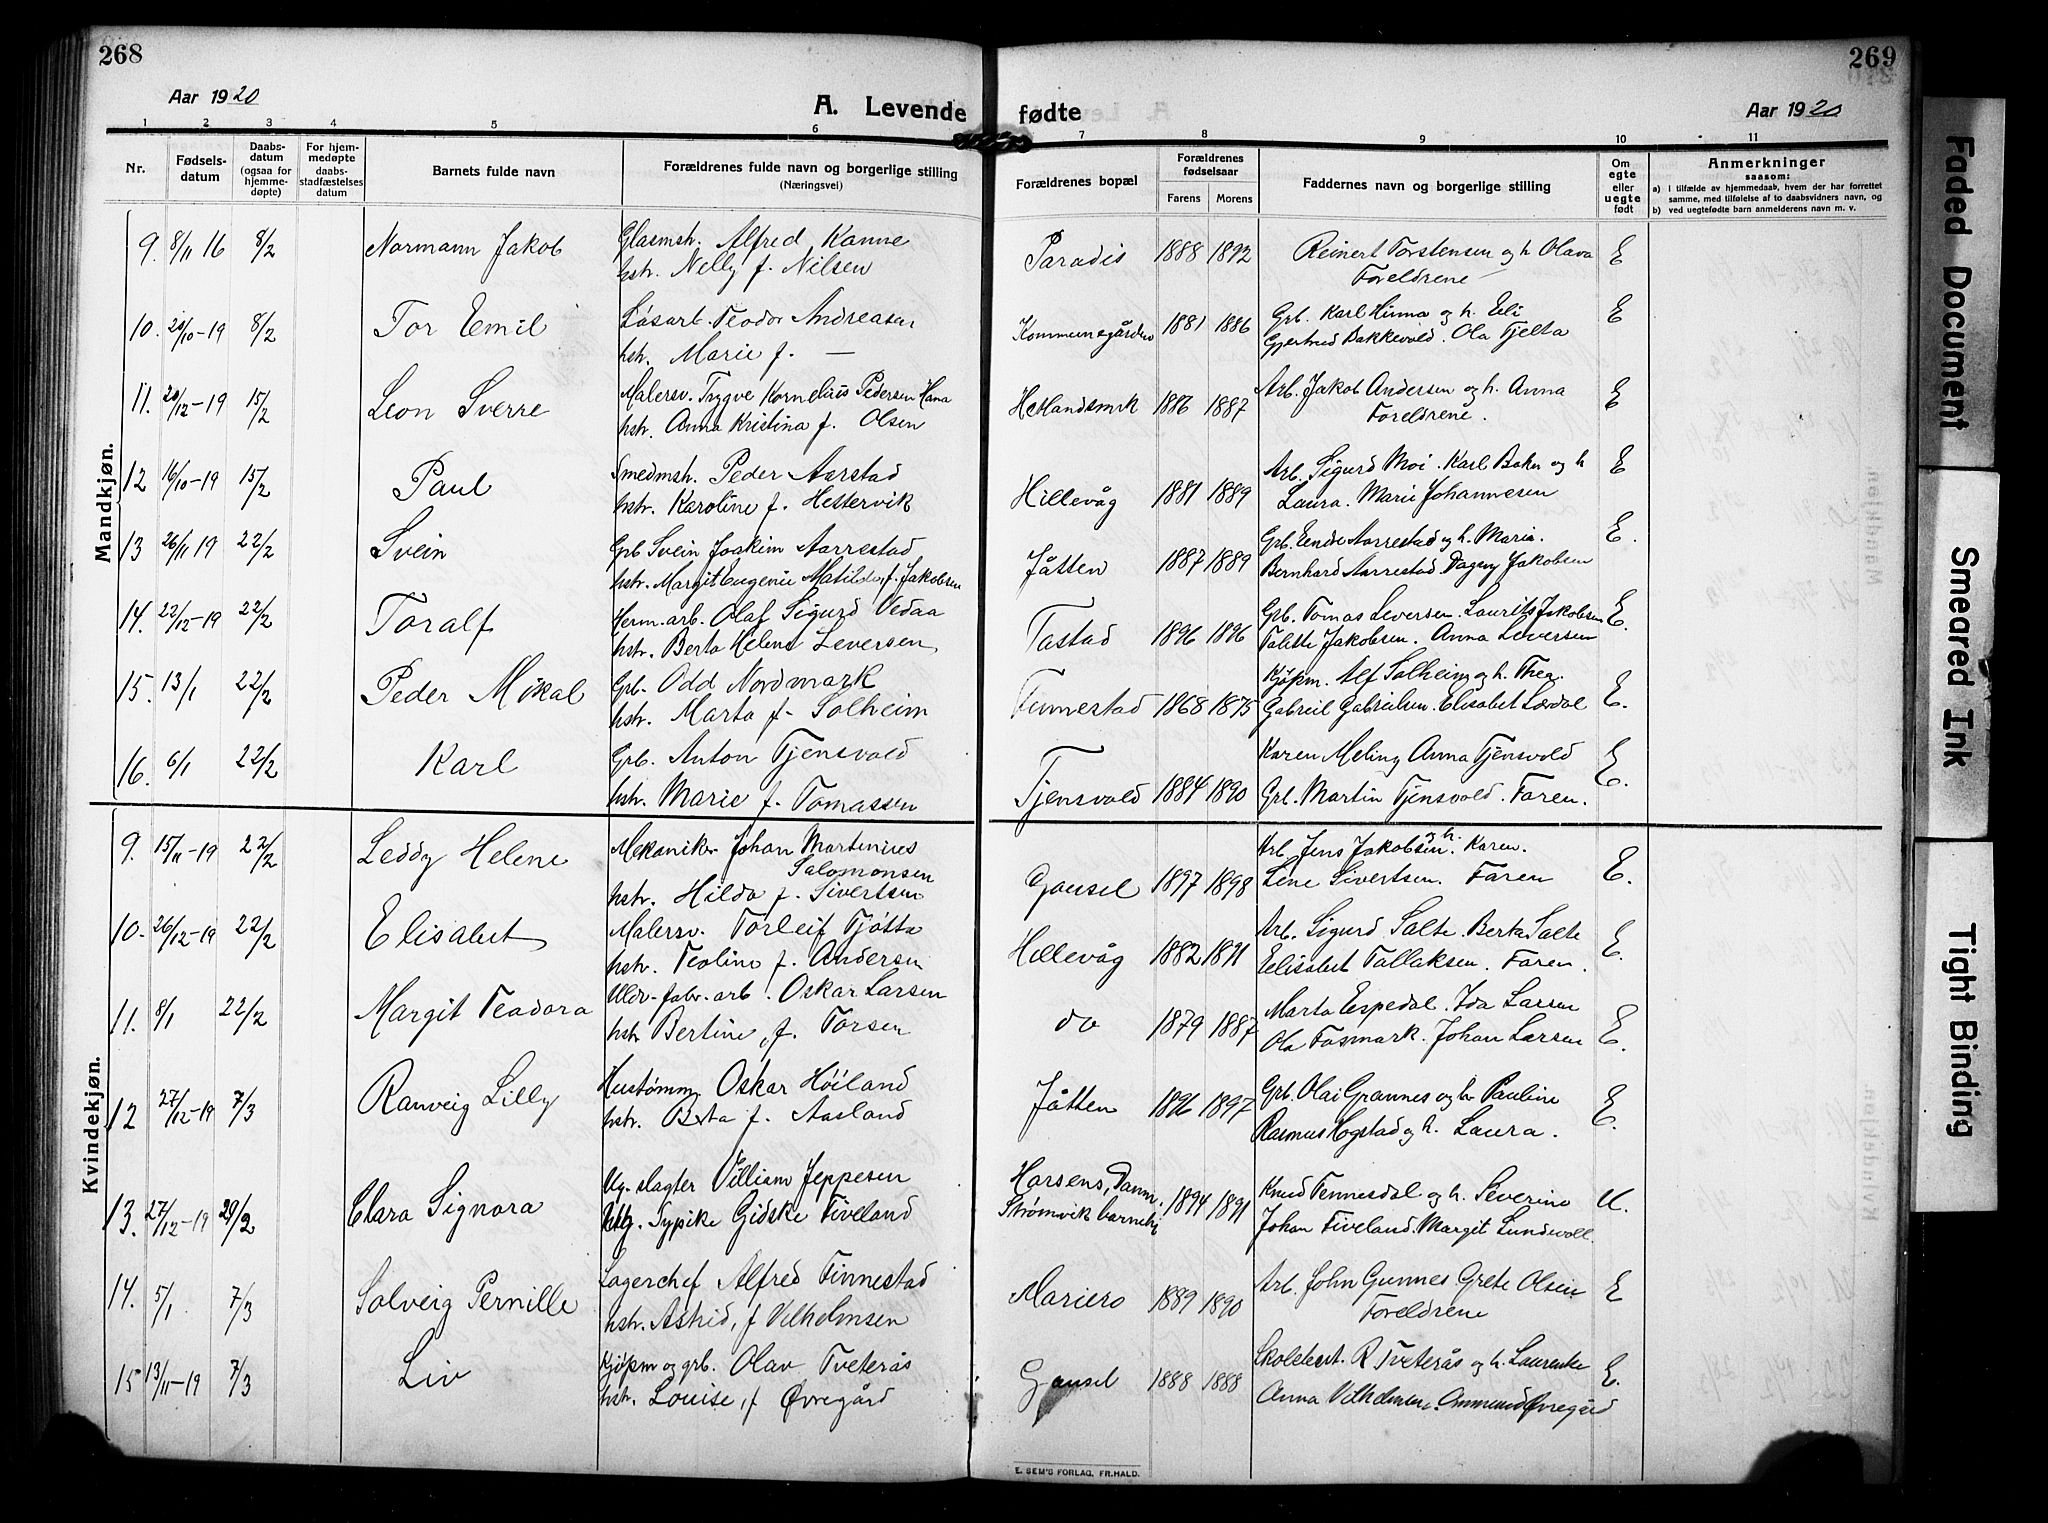 268
269
Aar 1920
A. Levende fødte
Aar 1920
1 2 3 4 5 6 7 8 9 10 11
Nr.
Fødsels-
datum
Daabs-
datum
(ogsaa for
hjemme-
døpte)
For hjem-
medøpte
daabs-
stadfæstelses
datum
Barnets fulde navn
Forældrenes fulde navn og borgerlige stilling
(Næringsvei)
Forældrenes bopæl
Forældrenes
fødselsaar
Farens Morens
Faddernes navn og borgerlige stilling
Om
egte
eller
uegte
født
Anmerkninger
saasom:
a) I tilfælde av hjemmedaab, hvem der har forrettet
samme, med tilføielse af to daabsvidners navn, og
b) ved uegtefødte barn anmelderens navn m. v.
Mandkjøn.
9. 8/11 16 8/2 Normann Jakob Glasmstr. Alfred Kanne Paradis 1888 1892 Reinert Torstensen og h. Olava E
hstr. Nelly f. Nilsen Foreldrene
10. 20/10-19 8/2 Tor Emil Løsarb. Teodor Andreasen Kommunegården 1881 1886 Grb. Karl Hinna og h. Eli E
hstr. Marie f. — Gjertrud Bakkevold. Ola Tjelta
11. 20/12-19 15/2 Leon Sverre Malersv. Trygve Kornelius Pedersen Hana Hetlandsmrk 1886 1887 Arb. Jakob Andersen og h. Anna E
hstr. Anna Kristina f. Olsen Foreldrene.
12 16/10-19 15/2 Paul Smedmstr. Peder Aarstad Hillevåg 1881 1889 Arb. Sigurd Moi. Karl Baken og h E
hstr. Karoline f. Hestervik Laura. Marie Johannesen
13 26/11 19 22/2 Svein Grb Svein Joakim Aarrestad Jåtten 1887 1889 Grb. Eende Aarrestad og h. Marie. E.
hstr. Margit Eugenie Matilde, f. Jakobsen Bernhard Aarrestad. Dagny Jakobsen
14. 22/12-19 22/2 Toralf Herm. arb. Olaf Sigurd Vedaa Tastad 1896 1896 Grb. Tomas Leversen. Laurits Jakobsen E.
hstr. Berta Helene Leversen Talette Jakobsen. Anna Leversen
15. 13/1 22/2 Peder Mikal Grb. Odd Nordmark Finnestad 1868 1875 Kjøpm. Alf Solheim og h. Thea. E.
hstr. Marta f. Solheim Gabreil Gabrielsen. Elisabet Lordal
16. 6/1 22/2 Karl Grb. Anton Tjensvold Tjensvold 1884 1890 Karen Meling Anna Tjensvold E.
hstr. Marie f. Tomassen Grb. Martin Tjensvold. Faren.
Kvindekjøn.
9. 15/11-19 22/2 Leddy Helene Mekaniker Johan Martinius Gausel 1897 1898 Arb. Jens Jakobsen og h. Karen. E.
Salomonsen
hstr. Hilda f. Sivertsen Lene Sivertsen. Faren
10. 26/12-19 22/2 Elisabet Malersv. Torleif Tjøtta Hillevåg 1882 1891 Arb. Sigurd Salte. Berta Salte E.
hstr. Teoline f. Andersen Elisabet Tallaksen. Faren.
11. 8/1 22/2 Margit Teodora Uldv-fabr-arb. Oskar Larsen do 1879 1887 Marta Espedal. Ida Larsen E.
hstr Bertine, f. Torsen Ola Fosmark. Johan Larsen
12 27/12-19 7/3 Ranveig Lilly Hustømm. Oskar Høiland Jåtten 1896 1897 Grb. Olai Grannes og h Pauline E.
hstr. Berta f. Aasland Rasmus Hogstad og h. Laura.
13. 27/12-19 29/2 Clara Signora Ug. slagter Villiam Jeppesen Horsens, Danm. 1894 1891 Knud Tennesdal og h. Severine U.
Ug. Sypike Gidske Fiveland Strømvik barnehj Johan Fiveland. Margit Lundevoll.
14. 5/1 7/3 Solveig Pernille Lagerchef Alfred Finnestad Mariero 1889 1890 Arb. John Gunnes Grete Olsen E
hstr. Astrid, f Vilhelmsen Foreldrene
15 13/11-19 7/3 Liv Kjøpm og grb. Olav Tveterås Gausel 1888 1888 Skolebest. R Tveterås og h. Laurenke E.
hstr. Louise, f Øvregård Anna Vilhelmsen. Ommund Øvregård
E. SEM'S FORLAG, FR.HALD.
Faded Document
Smeared Ink
Tight Binding